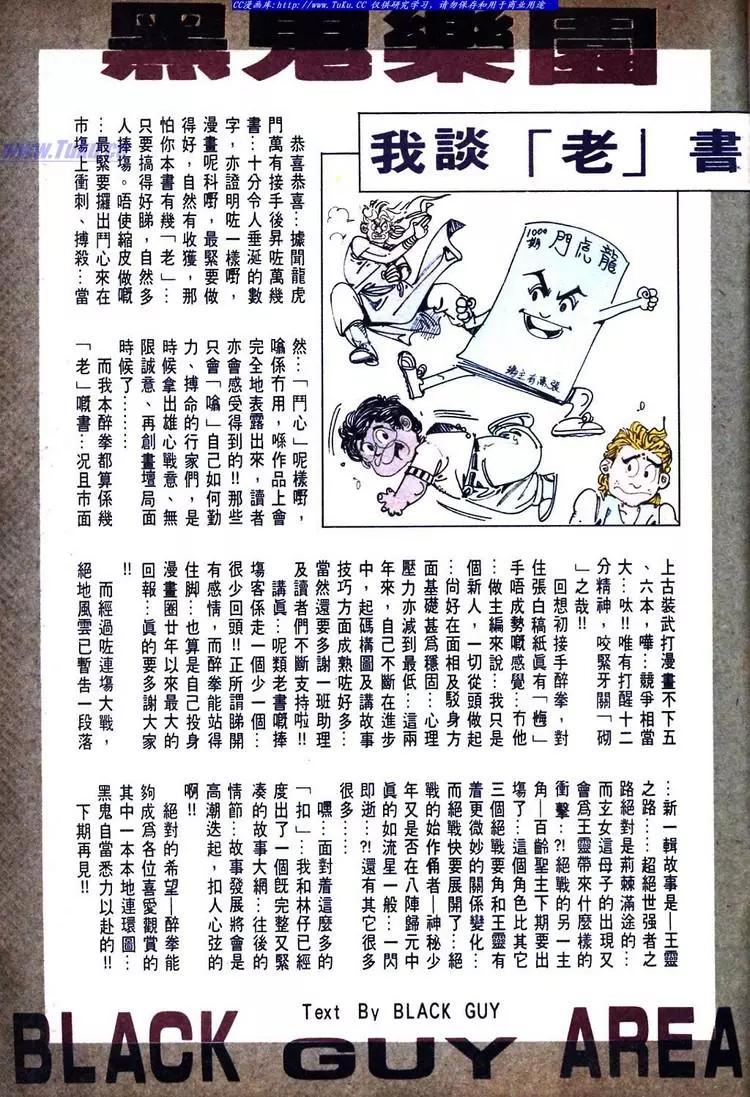 CC漫画库:http://www.TuKu.CC 仅供研究学习，请勿保存和用于商业用途
黑鬼樂園
我談「老」書
www.Tuku.cc
1000期
龍虎門
恭喜恭喜…據聞龍虎
門萬有接手後昇咗萬幾
書…十分令人垂涎的數
字，亦證明咗一樣嘢，
漫畫呢科嘢，最緊要做
得好，自然有收獲，那
怕你本書有幾「老」…
只要搞得好睇，自然多
人捧場。唔使縮皮做嘅
…最緊要攞出鬥心來在
市塲上衝刺、搏殺…當
然…「鬥心」呢樣嘢，
噏係冇用，喺作品上會
完全地表露出來，讀者
亦會感受得到的!!那些
只會「噏」自己如何勤
力、搏命的行家們，是
時候拿出雄心戰意、無
限誠意、再創畫壇局面
時候了………
而我本醉拳都算係幾
「老」嘅書…況且市面
上古裝武打漫畫不下五
、六本，嘩…競爭相當
大…呔!!唯有打醒十二
分精神，咬緊牙關「砌
」之哉!!
回想初接手醉拳，對
住張白稿紙眞有「慪」
手唔成勢嘅感覺…冇他
…做主編來說…我只是
個新人，一切從頭做起
…尙好在面相及駁身方
面基礎甚爲穩固…心理
壓力亦減到最低…這兩
年來，自己不斷在進步
中，起碼構圖及講故事
技巧方面成熟咗好多…
當然還要多謝一班助理
及讀者們不斷支持啦!!
講眞…呢類老書嘅捧
塲客係走一個少一個…
很少回頭!!正所謂睇開
有感情，而醉拳能站得
住脚…也算是自己投身
漫畫圈廿年以來最大的
回報…眞的要多謝大家
!!
而經過咗連塲大戰，
絕地風雲已暫告一段落
…新一輯故事是—王靈
之路……超絕世强者之
路絕對是荊棘滿途的…
而玄女這母子的出現又
會爲王靈帶來什麼樣的
衝擊…?!絕戰的另一主
角—百齡聖主下期要出
塲了…這個角色比其它
三個絕戰要角和王靈有
着更微妙的關係變化…
而絕戰快要展開了…絕
戰的始作俑者—神秘少
年又是否在八陣歸元中
眞的如流星一般…一閃
即逝…?!還有其它很多
很多……
嘿…面對着這麼多的
「扣」…我和林仔已經
度出了一個旣完整又緊
凑的故事大綱…往後的
情節…故事發展將會是
高潮迭起，扣人心弦的
啊!!
絕對的希望—醉拳能
夠成爲各位喜愛觀賞的
其中一本本地連環圖…
黑鬼自當悉力以赴的!!
下期再見!!
Text By BLACK GUY
BLACK GUY AREA